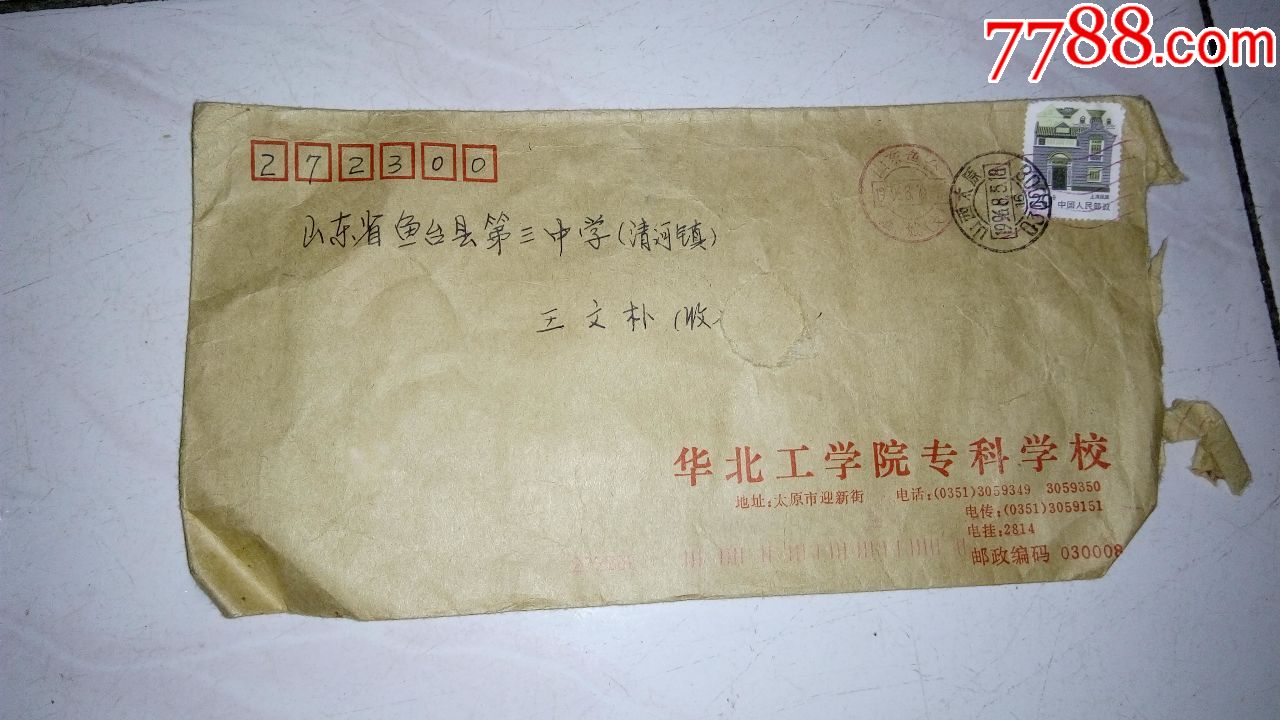 7788.com
272300
山东省鱼台县第三中学(清河镇)
王文朴(收
山西太原
1996.8.5.18
030008
上海民居
中国人民邮政
华北工学院专科学校
地址:太原市迎新街 电话:(0351)3059349 3059350
电传:(0351)3059151
电挂:2814
邮政编码 030008